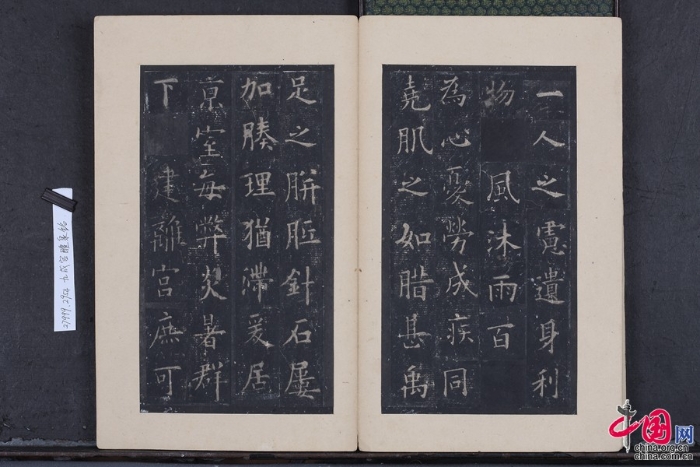 一人之慮遺身利
物 風沐雨百
為心憂勞成疾同
堯肌之如腊甚禹
足之胼胝針石屢
加腠理猶滯爰居
京室每弊炎暑群
下 建離宮庶可
九成宫醴泉銘
中国网
china.org.cn
china.com.cn